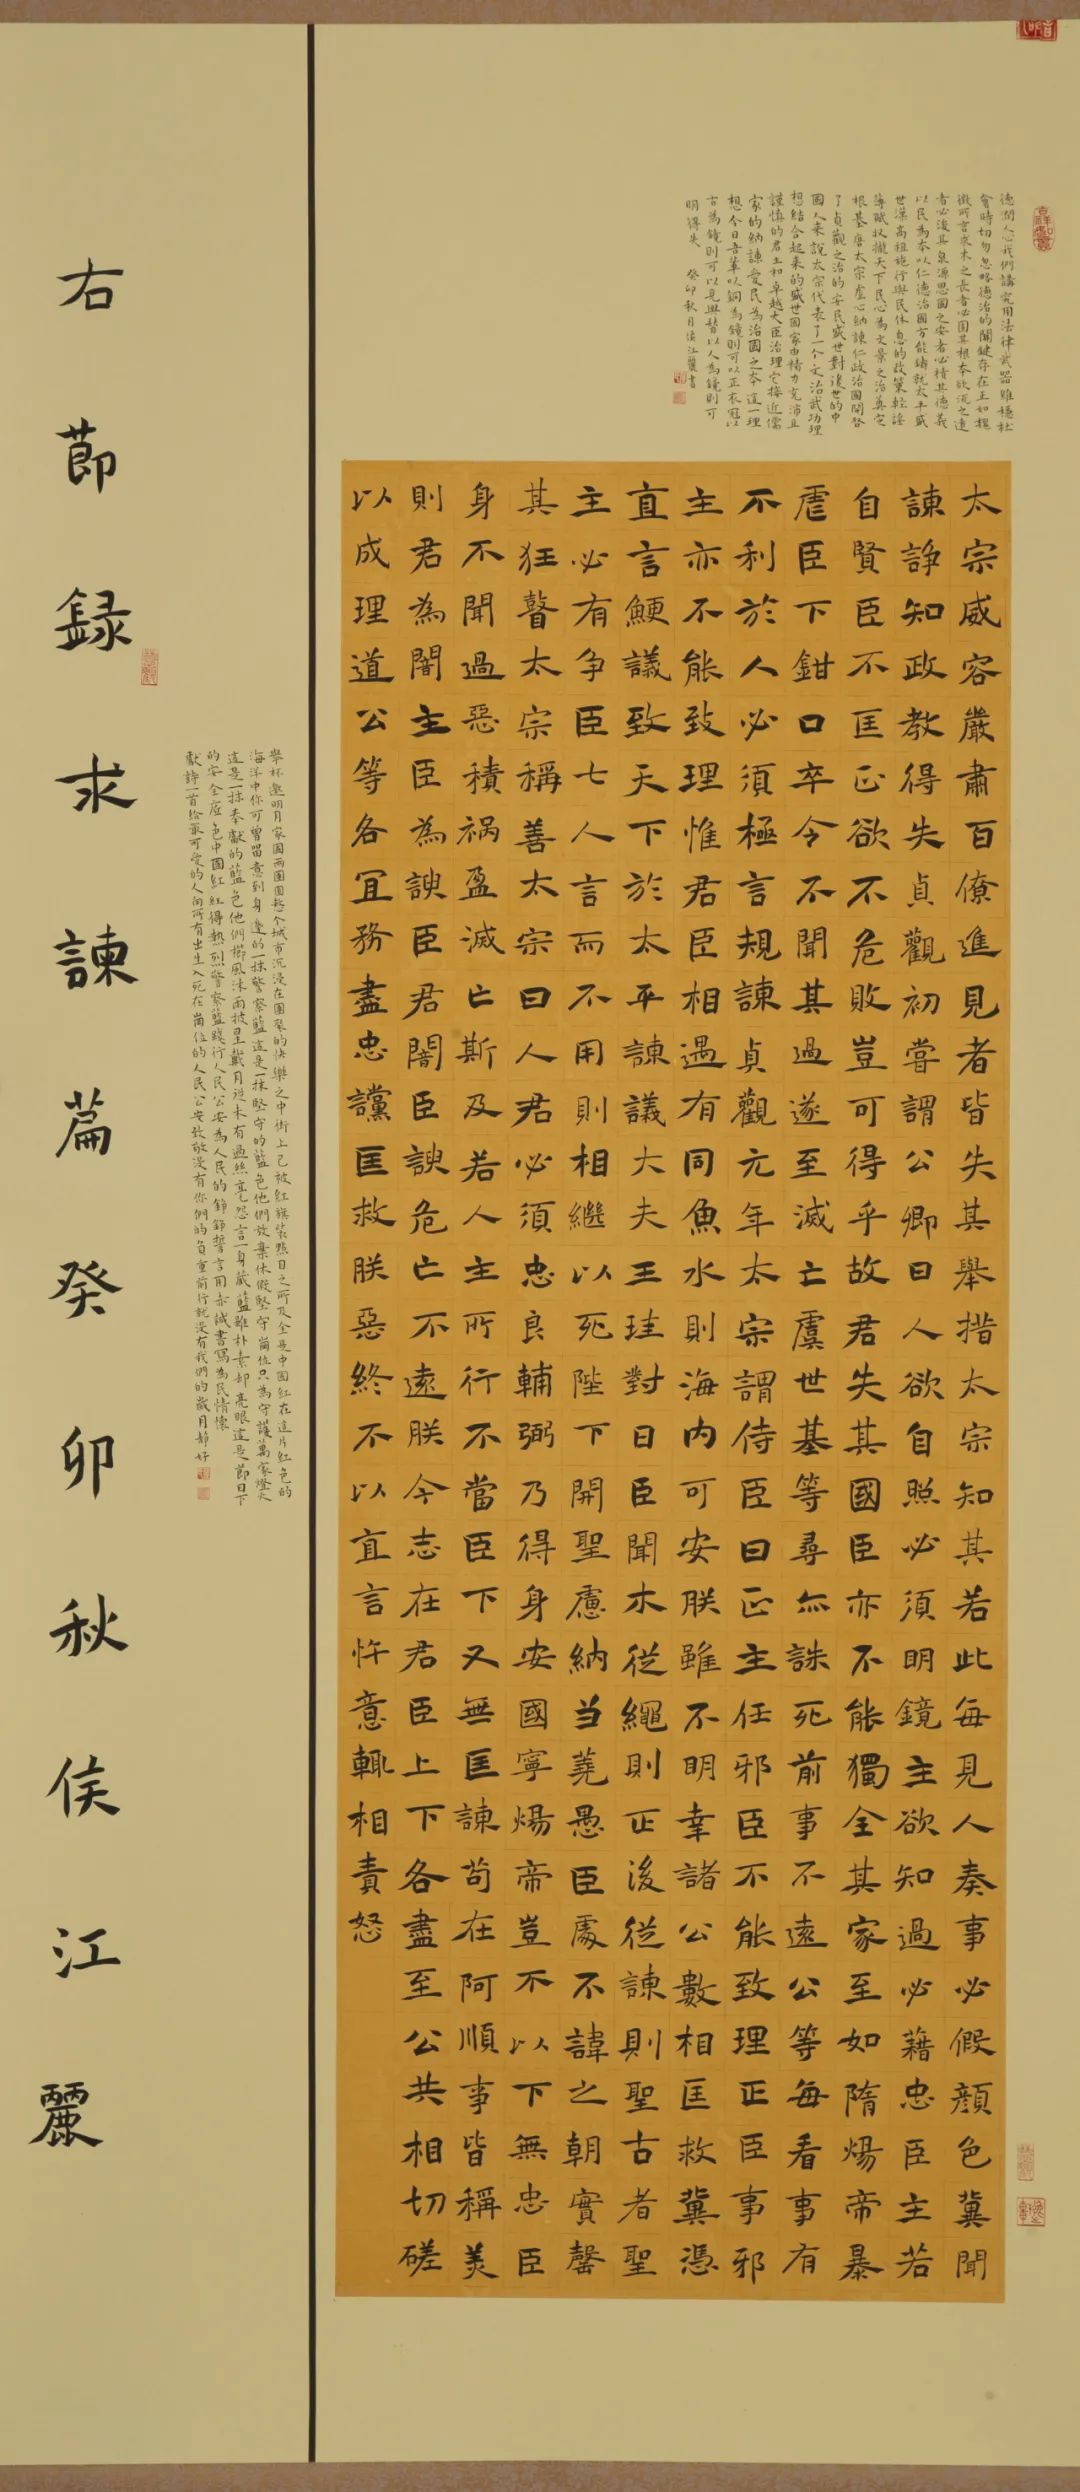 德潤人心我們講究用法律武器維穩社
會時切勿忽略德治的關鍵存在正如魏
徵所言求木之長者必固其根本欲流之遠
者必浚其泉源思國之安者必積其德義
以民為本以仁德治國方能鑄就太平盛
世漢高祖施行與民休息的政策輕謠
薄賦收攏天下民心為文景之治奠定
根基唐太宗虛心納諫仁政治國開啓
了貞觀之治的安民盛世對後世的中
國人來說太宗代表了一個文治武功理
想結合起來的盛世國家由精力充沛且
謹慎的君主和卓越大臣治理它接近儒
家的納諫愛民為治國之本這一理
想今日吾輩以銅為鏡則可以正衣冠以
古為鏡則可以見興替以人為鏡則可
明得失 癸卯秋月侯江麗書
太宗威容嚴肅百僚進見者皆失其舉措太宗知其若此每見人奏事必假顏色冀聞
諫諍知政教得失貞觀初嘗謂公卿曰人欲自照必須明鏡主欲知過必藉忠臣主若
自賢臣不匡正欲不危敗豈可得乎故君失其國臣亦不能獨全其家至如隋煬帝暴
虐臣下鉗口卒令不聞其過遂至滅亡虞世基等尋亦誅死前事不遠公等每看事有
不利於人必須極言規諫貞觀元年太宗謂侍臣曰正主任邪臣不能致理正臣事邪
主亦不能致理惟君臣相遇有同魚水則海內可安朕雖不明幸諸公數相匡救冀憑
直言鯁議致天下於太平諫議大夫王珪對曰臣聞木從繩則正後從諫則聖古者聖
主必有爭臣七人言而不用則相繼以死陛下開聖慮納芻蕘愚臣處不諱之朝實罄
其狂瞽太宗稱善太宗曰人君必須忠良輔弼乃得身安國寧煬帝豈不以下無忠臣
身不聞過惡積禍盈滅亡斯及若人主所行不當臣下又無匡諫苟在阿順事皆稱美
則君為闇主臣為諛臣君闇臣諛危亡不遠朕今志在君臣上下各盡至公共相切磋
以成理道公等各宜務盡忠讜匡救朕惡終不以直言忤意輒相責怒
舉杯邀明月家國兩團圓整个城市沉浸在團聚的快樂之中街上已被紅旗裝點目之所及全是中國紅在這片紅色的
海洋中你可曾留意到身邊的一抹警察藍這是一抹堅守的藍色他們放棄休假堅守崗位只為守護萬家燈火
這是一抹奉獻的藍色他們櫛風沐雨披星戴月從未有過絲毫怨言一身藏藍雖朴素却亮眼這是節日下
的安全底色中國紅紅得熱烈警察藍踐行人民公安為人民的錚錚誓言用赤誠書寫為民情懷
獻詩一首給最可愛的人向所有出生入死在崗位的人民公安致敬沒有你們的負重前行就沒有我們的歲月靜好
右節録求諫篇癸卯秋侯江麗